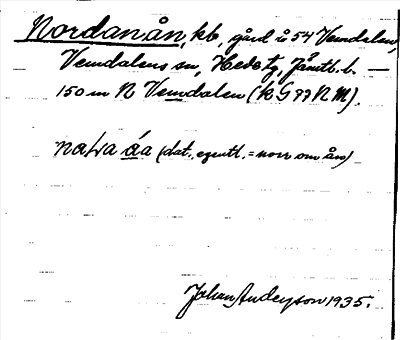 Nordanån, kb, gård i 54 Vemdalen,
Vemdalens sn, Hede tg, Jämtl. l. —
150 m N Vemdalen (k G 99 N M).
áa (dat., egentl. = norr om ån)
Johan Anderson 1935.